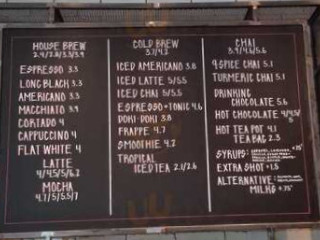 HOUSE BREW
2.4/2.8/3.3/3.9
ESPRESSO 3.3
LONG BLACK 3.3
AMERICANO 3.3
MACCHIATO 3.9
CORTADO 4
CAPPUCCINO 4
FLAT WHITE 4
LATTE
4/4.5/5/6.2
MOCHA
4.7/5/5.5/7
COLD BREW
3.7/4.2
ICED AMERICANO 3.8
ICED LATTE 5/5.5
ICED CHAI 5/5.5
ESPRESSO + TONIC 4.6
DOKI-DOKI 3.8
FRAPPE 4.7
SMOOTHIE 4.2
TROPICAL
ICED TEA 2.1/2.6
CHAI
3.9/4.5/5.6
9 SPICE CHAI 5.1
TURMERIC CHAI 5.1
DRINKING
CHOCOLATE 5.6
HOT CHOCOLATE 4/4.5/
5
HOT TEA POT 4.1
TEA BAG 2.3
SYRUPS: +.75
EXTRA SHOT +1.5
ALTERNATIVE
MILKS +.75